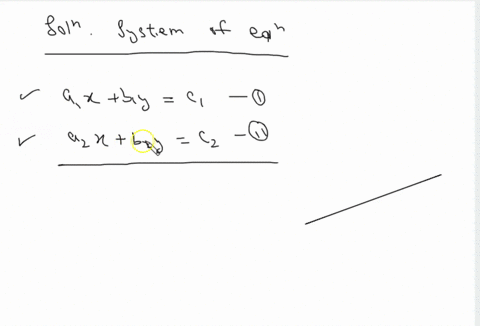 Solⁿ. System of eqⁿ
✓ a₁x + b₁y = c₁ — ①
✓ a₂x + b₂y = c₂ — ⑪